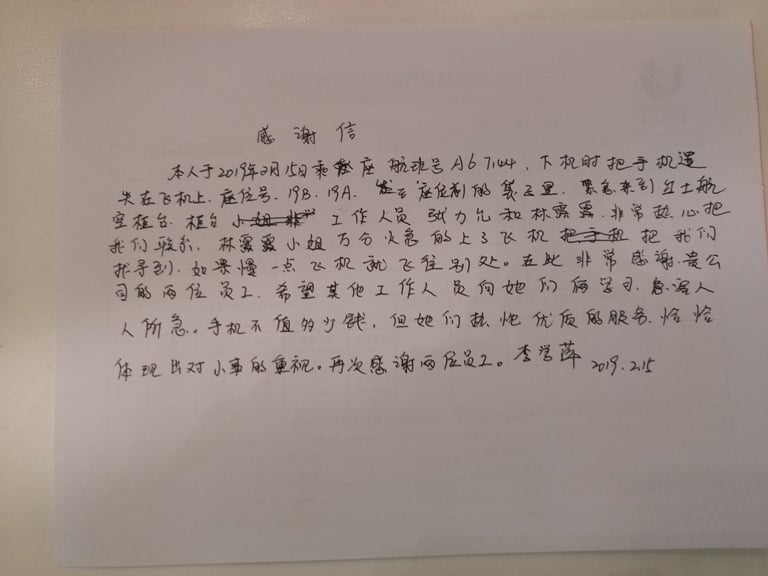 感谢信
本人于2019年2月15日乘座航班号A67144,下机时把手机遗
失在飞机上.座位号.19B.19A.座位前的袋子里.来到红土航
空柜台.柜台工作人员和林露露.非常热心把
我们联系.林露露小姐万分火急的上了飞机把我们
找寻到.如果慢一点飞机就飞往别处。在此非常感谢贵公
司的两位员工.希望其他工作人员向她们俩学习.急客人
人所急。手机不值多少钱,但她们热忱优质的服务.恰恰
体现出对小事的重视。再次感谢两位员工。李学萍 2019.2.15